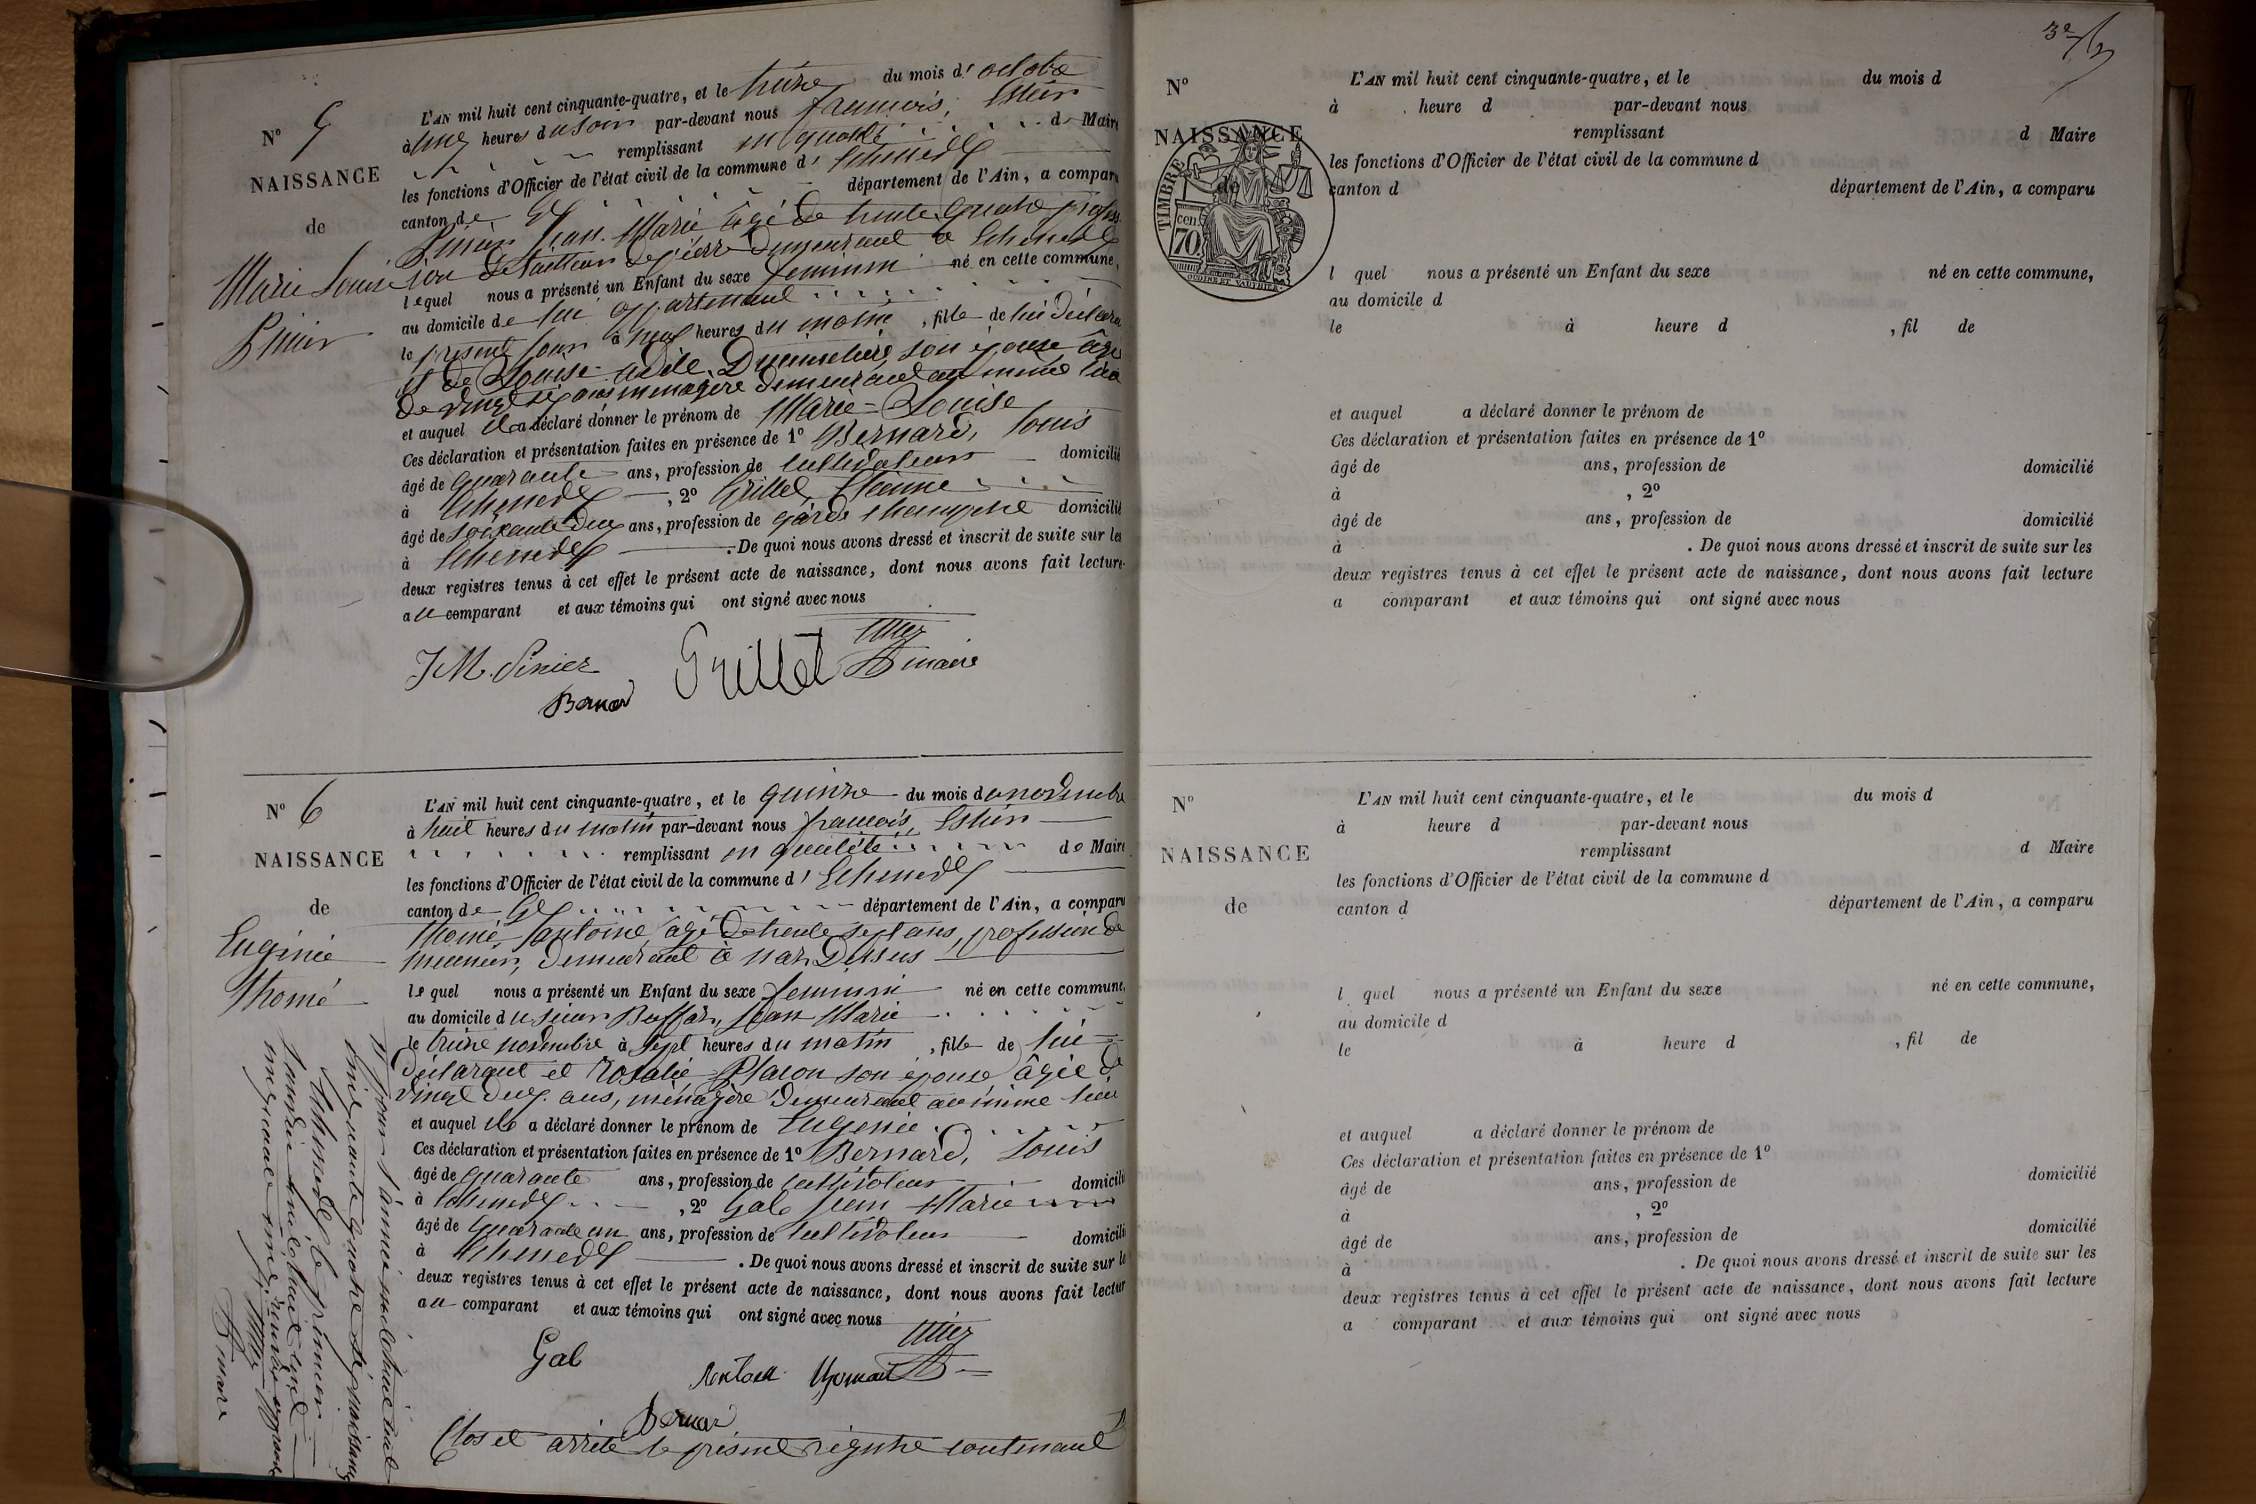 N° 5
NAISSANCE
de
Marie Louise
Pinier
L'AN mil huit cent cinquante-quatre, et le treize du mois d'octobre
à cinq heures du soir par-devant nous françois,
remplissant en qualité de Maire
les fonctions d'Officier de l'état civil de la commune d'Echenevex
canton de Gex département de l'Ain, a comparu
Pinier Jean-Marie âgé de trente quatre profess
sion de tailleur de pierre demeurant à Echenevex
lequel nous a présenté un Enfant du sexe feminin né en cette commune,
au domicile de lui appartenant
le présent jour à heures du matin, fille de lui déclarant
et de Louise son épouse âgée
de vingt six ans ménagère demeurant au même lieu
et auquel il a déclaré donner le prénom de Marie-Louise
Ces déclaration et présentation faites en présence de 1° Bernard, Louis
âgé de quarante ans, profession de cultivateur domicilié
à Echenevex, 2° Grillet Etienne
âgé de soixante deux ans, profession de garde champêtre domicilié
à Echenevex. De quoi nous avons dressé et inscrit de suite sur les
deux registres tenus à cet effet le présent acte de naissance, dont nous avons fait lecture
au comparant et aux témoins qui ont signé avec nous
J M. Pinier
Grillet
maire
Bernar
N° 6
NAISSANCE
de
Eugénie
Thomé
L'AN mil huit cent cinquante-quatre, et le quinze du mois de novembre
à huit heures du matin par-devant nous françois,
remplissant en qualité de Maire
les fonctions d'Officier de l'état civil de la commune d'Echenevex
canton de Gex département de l'Ain, a comparu
Thomé, antoine, agé de trente sept ans, profession de
meunier, demeurant à naz Dessus
lequel nous a présenté un Enfant du sexe feminin né en cette commune,
au domicile du sieur Jean Marie
le treize novembre à sept heures du matin, fille de lui
déclarant et Rosalie son épouse, âgée de
vingt deux ans, ménagère demeurant au même lieu
et auquel il a déclaré donner le prénom de Eugenie
Ces déclaration et présentation faites en présence de 1° Bernard, Louis
âgé de quarante ans, profession de cultivateur domicilié
à Echenevex, 2° Gab Jean Marie
âgé de quarante un ans, profession de cultivateur domicilié
à Echenevex. De quoi nous avons dressé et inscrit de suite sur le
deux registres tenus à cet effet le présent acte de naissance, dont nous avons fait lecture
au comparant et aux témoins qui ont signé avec nous
Gab
Bernar
Clos et arrêté le présent régistre contenant
pour l'année mil huit cent
cinquante quatre naissances
Echenevex, le premier
janvier mil huit cent
maire
N°
NAISSANCE
de
TIMBRE
cen.
70.
L'AN mil huit cent cinquante-quatre, et le du mois d
à heure d par-devant nous
remplissant d Maire
les fonctions d'Officier de l'état civil de la commune d
canton d département de l'Ain, a comparu
l quel nous a présenté un Enfant du sexe né en cette commune,
au domicile d
le à heure d , fil de
et auquel a déclaré donner le prénom de
Ces déclaration et présentation faites en présence de 1°
âgé de ans, profession de domicilié
à , 2°
âgé de ans, profession de domicilié
à . De quoi nous avons dressé et inscrit de suite sur les
deux registres tenus à cet effet le présent acte de naissance, dont nous avons fait lecture
a comparant et aux témoins qui ont signé avec nous
N°
NAISSANCE
de
L'AN mil huit cent cinquante-quatre, et le du mois d
à heure d par-devant nous
remplissant d Maire
les fonctions d'Officier de l'état civil de la commune d
canton d département de l'Ain, a comparu
l quel nous a présenté un Enfant du sexe né en cette commune,
au domicile d
le à heure d , fil de
et auquel a déclaré donner le prénom de
Ces déclaration et présentation faites en présence de 1°
âgé de ans, profession de domicilié
à , 2°
âgé de ans, profession de domicilié
à . De quoi nous avons dressé et inscrit de suite sur les
deux registres tenus à cet effet le présent acte de naissance, dont nous avons fait lecture
a comparant et aux témoins qui ont signé avec nous